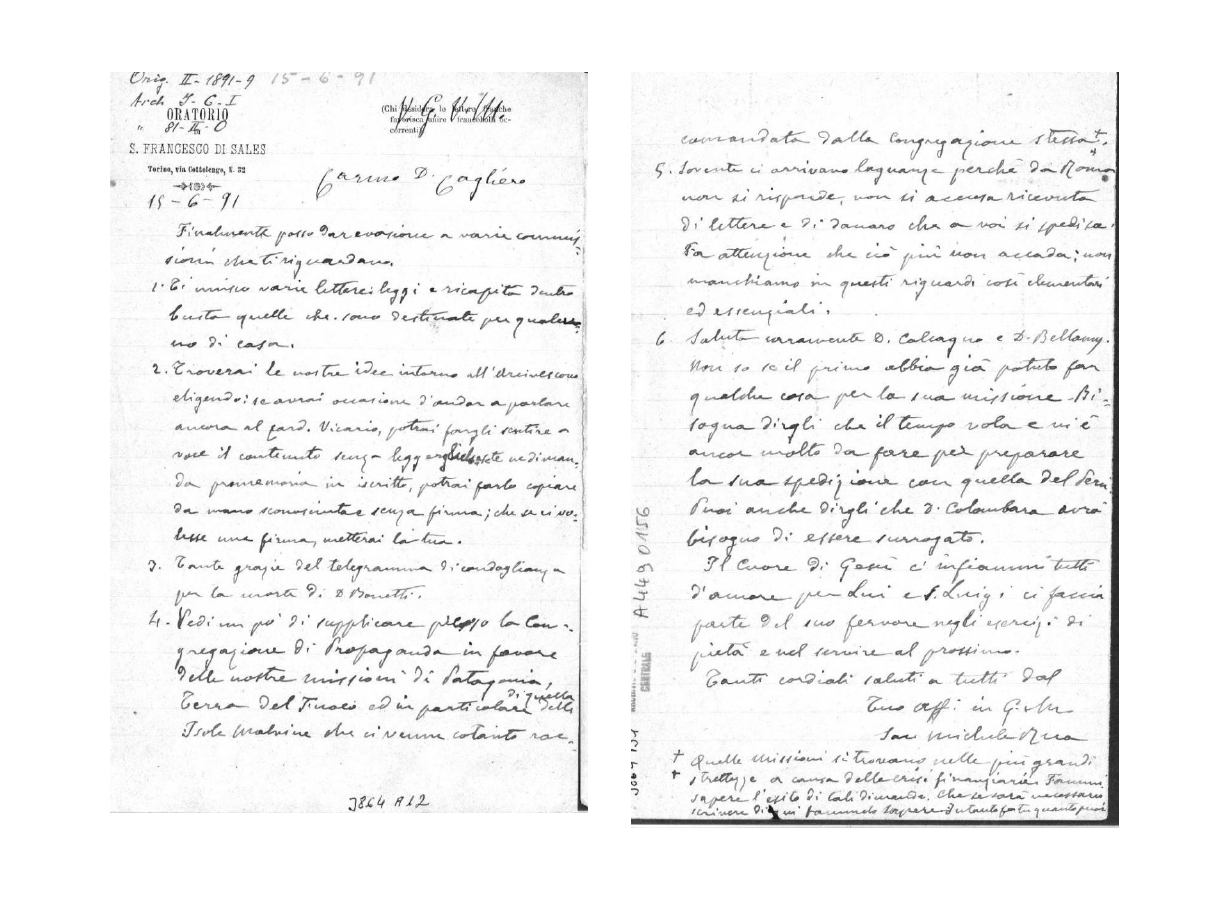 Orig. II-1891-9 15-6-91
Arch J-C-I
ORATORIO
" 81-II-O
S. FRANCESCO DI SALES
Torino, via Cottolengo, N. 32
(Chi desidera le lettere franche
favorisca unire i francobolli oc-
correnti)
V. G. V. M.
15-6-91
Carmo D. Cagliero
Finalmente posso dar evasione a varie commis-
sioni che ti riguardano.
1. Ti unisco varie lettere: leggi e ricapita dentro
busta quelle che sono destinate per qualcu-
no di casa.
2. Troverai le nostre idee intorno all'Arcivescovo
eligendo: se avrai occasione d'andar a parlare
ancora al Card. Vicario, potrai fargli sentire a
voce il contenuto senza leggerglielo; se te ne diman-
da promemoria in iscritto, potrai farlo copiare
da mano sconosciuta e senza firma; che se ci vo-
lesse una firma, metterai la tua.
3. Tante grazie del telegramma di condoglianza
per la morte di D. Bonetti.
4. Vedi un po' di supplicare presso la Con-
gregazione di Propaganda in favore
delle nostre missioni di Patagonia,
Terra del Fuoco ed in particolare di quella delle
Isole Malvine che ci venne cotanto rac-
3864 A12
comandata dalla Congregazione stessa +.
5. Sovente ci arrivano lagnanze perché da Roma
non si risponde, non si accusa ricevuta
di lettere e di danaro che a voi si spedisca.
Fa attenzione che ciò più non accada; non
manchiamo in questi riguardi così elementari
ed essenziali.
6. Saluta caramente D. Calcagno e D. Bellamy.
Non so se il primo abbia già potuto far
qualche cosa per la sua missione. Bi-
sogna dirgli che il tempo vola e vi è
ancor molto da fare per preparare
la sua spedizione con quella del Perù.
Puoi anche dirgli che D. Colombara avrà
bisogno di essere surrogato.
Il Cuore di Gesù c'infiammi tutti
d'amore per Lui e S. Luigi ci faccia
parte del suo fervore negli esercizi di
pietà e nel servire al prossimo.
Tanti cordiali saluti a tutti dal
Tuo aff. in G. e M.
Sac. Michele Rua
+ Quelle missioni si trovano nelle più grandi
+ strettezze a causa della crisi finanziaria. Fammi
sapere l'esito di tali dimande. Che se sarà necessario
scrivere di qui fammelo sapere. Intanto fa tu quanto puoi
A 449 0156
CENTRALE